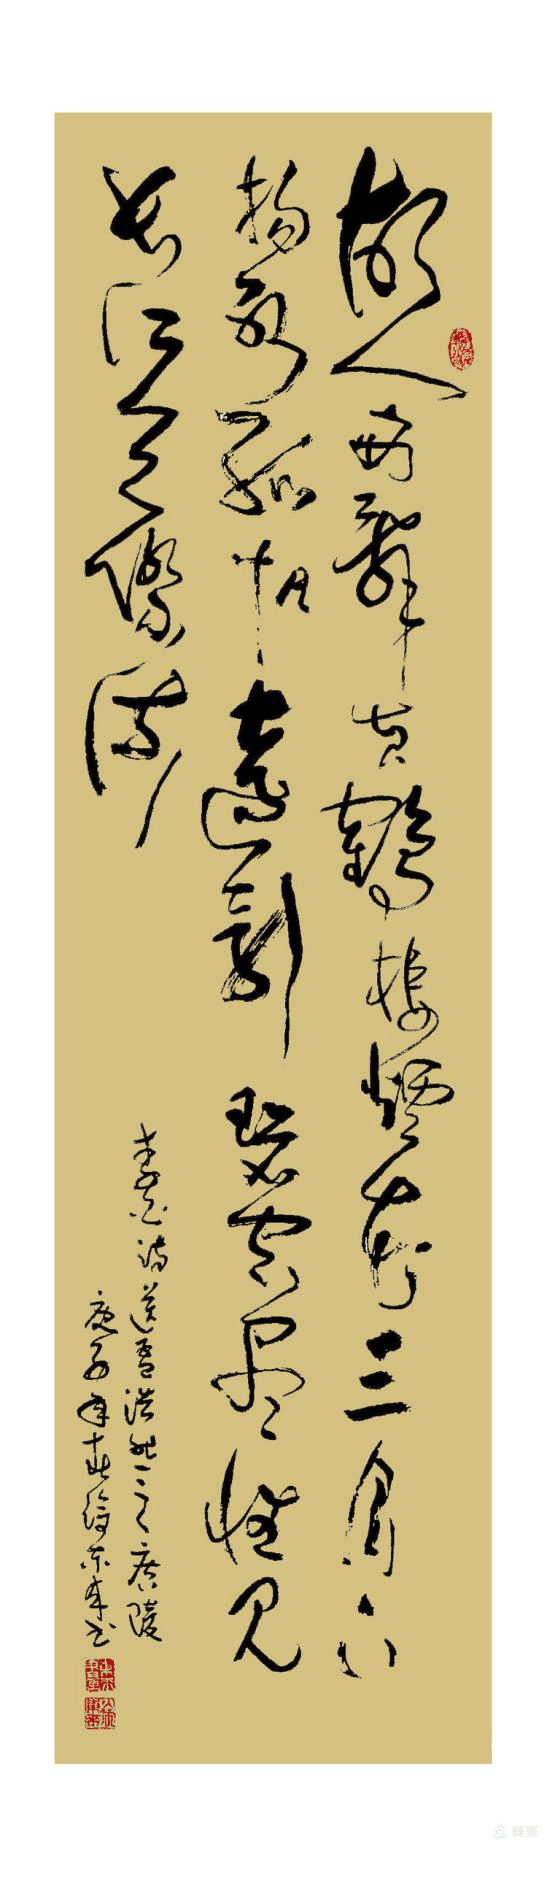 故人西辭黄鶴樓煙花三月下
揚州孤帆遠影碧空盡惟見
長江天際流
李白诗送孟浩然之廣陵
庚子年春